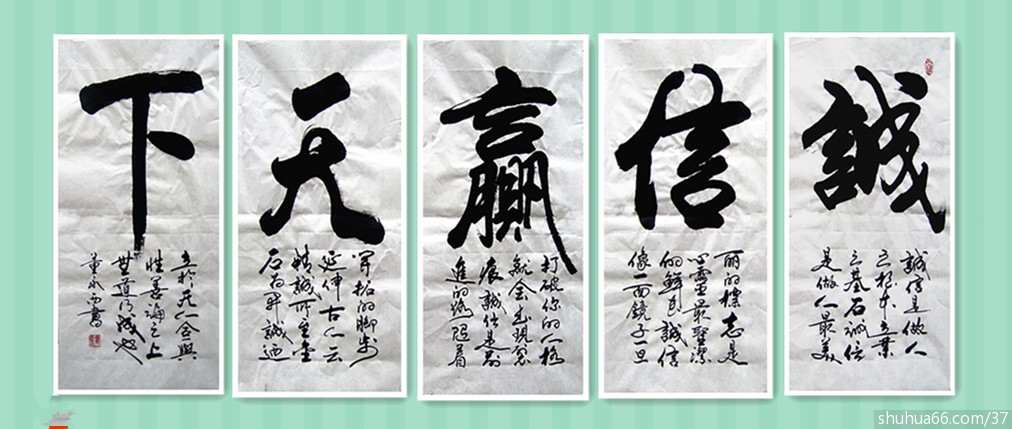 誠
誠信是做人
之根本立業
之基石誠信
是做人最美
信
丽的標志是
心靈最聖潔
的鲜花誠信
像一面鏡子一旦
赢
打破你的人格
就会出現裂
痕誠信是前
進的路随着
天
開拓的脚步
延伸古人云
精誠所至金
石為開誠迺
下
立於天人合與
性善論之上
世道乃成也
書
shuhua66.com/37